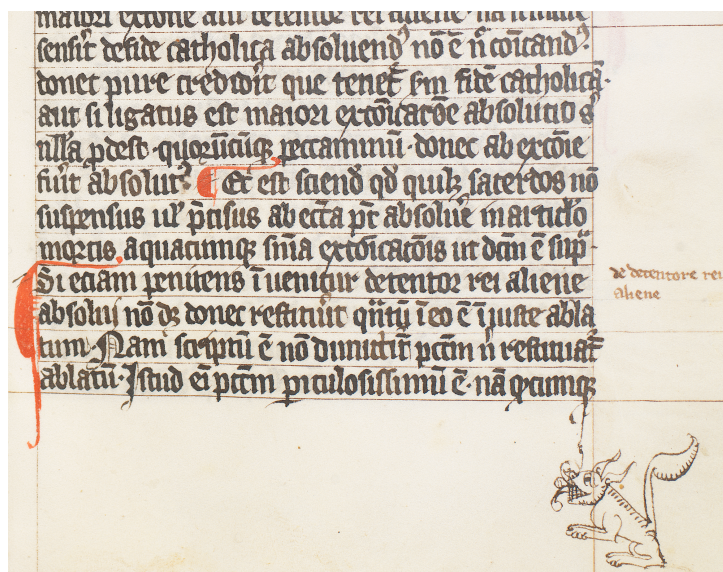 maiori extoine aut detentor rei aliene · na
sensit̃ de fide catholica absoluendꝰ nō ē n̄ cōicandꝰ ·
donec pure credidit̃ que tenet̃ scm̄ fidē catholicā ·
aut si ligatus est maiori excōicatōe absolutio
nulla ꝓdest · quorūcūqꝫ peccaminū · donec ab excōie
fuit̃ absolutꝰ ¶ Et est sciend qd quilꝫ sacerdos nō
suspensus ul' p̄cisus ab ecc̄a pt̄ absolue͛ in articlo
mortis, a quacumqꝫ sn̄ia excōicatōis ut dcm̄ ē sup͛ ·
Si eciam penitens īuenitur detentor rei aliene
absolui nō dꝫ donec restituit̃ qn̄tū ī eo ē īiuste abla
tum · Nam scriptū ē nō dimittit̃ pctm̄ n̄ restituat̃
ablatū · Istud ei pctm̄ piculosissimū ē · nā q̇cumqꝫ
de detentore rei
aliene